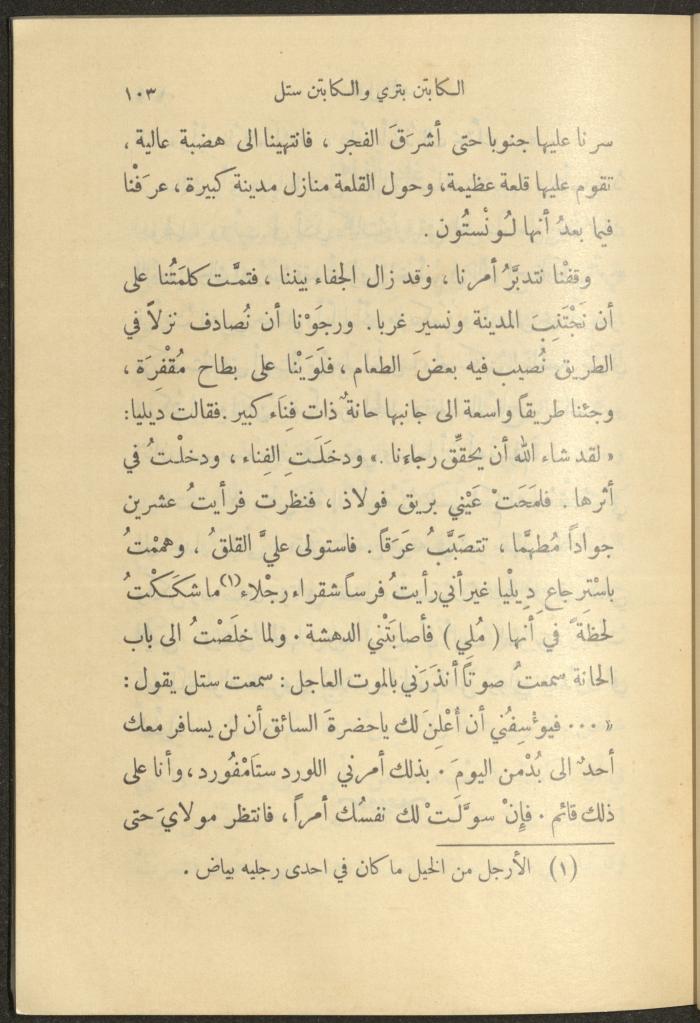 الكابتن بتري والكابتن ستل ١٠٣
سرنا عليها جنوبا حتى أشرَقَ الفجر ، فانتهينا الى هضبة عالية ،
تقوم عليها قلعة عظيمة، وحول القلعة منازل مدينة كبيرة ، عرَفْنا
فيما بعدُ أنها لُونْستُون .
وقفْنا نتدبَّرُ أمرنا ، وقد زال الجفاء بيننا ، فتمَّت كلمَتُنا على
أن نَجْتَنِبَ المدينة ونسير غربا. ورجَوْنا أن نُصادف نزلاً في
الطريق نُصيب فيه بعضَ الطعام ، فلَوَيْنا على بطاح مُقْفِرَة ،
وجئنا طريقاً واسعة الى جانبها حانةٌ ذات فِنَاء كبير . فقالت ديليا:
« لقد شاء الله أن يحقِّق رجاءنا .» ودخَلَتِ الفِناء ، ودخلْتُ في
أثرها . فلمَحَتْ عَيْني بريق فولاذ ، فنظرت فرأيتُ عشرين
جواداً مُطهَّما ، تتصَبَّبُ عَرَقاً . فاستولى عليَّ القلقُ ، وهممْتُ
باسْتِرجاعِ دِيلْيا غير أني رأيتُ فرساً شقراء رجْلاء (١) ما شكَكْتُ
لحظَةً في أنها ( مُلي ) فأصابَتْني الدهشة . ولما خلَصْتُ الى باب
الحانة سمعتُ صوتاً أنذَرَني بالموت العاجل : سمعت ستل يقول :
« ... فيؤْسِفُني أن أُعْلِنَ لك ياحضرةَ السائق أن لن يسافر معك
أحدٌ الى بُدْمن اليومَ . بذلك أمرني اللورد ستَامْفُورد ، وأنا على
ذلك قائم . فإِنْ سوَّلَتْ لك نفسُك أمراً ، فانتظر مولايَ حتى
(١) الأرجل من الخيل ما كان في احدى رجليه بياض .